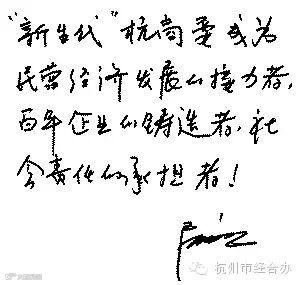 “新生代”杭商要成为
民营经济发展的接力者,
百年企业的铸造者,社
会责任的承担者!
杭州市经合办